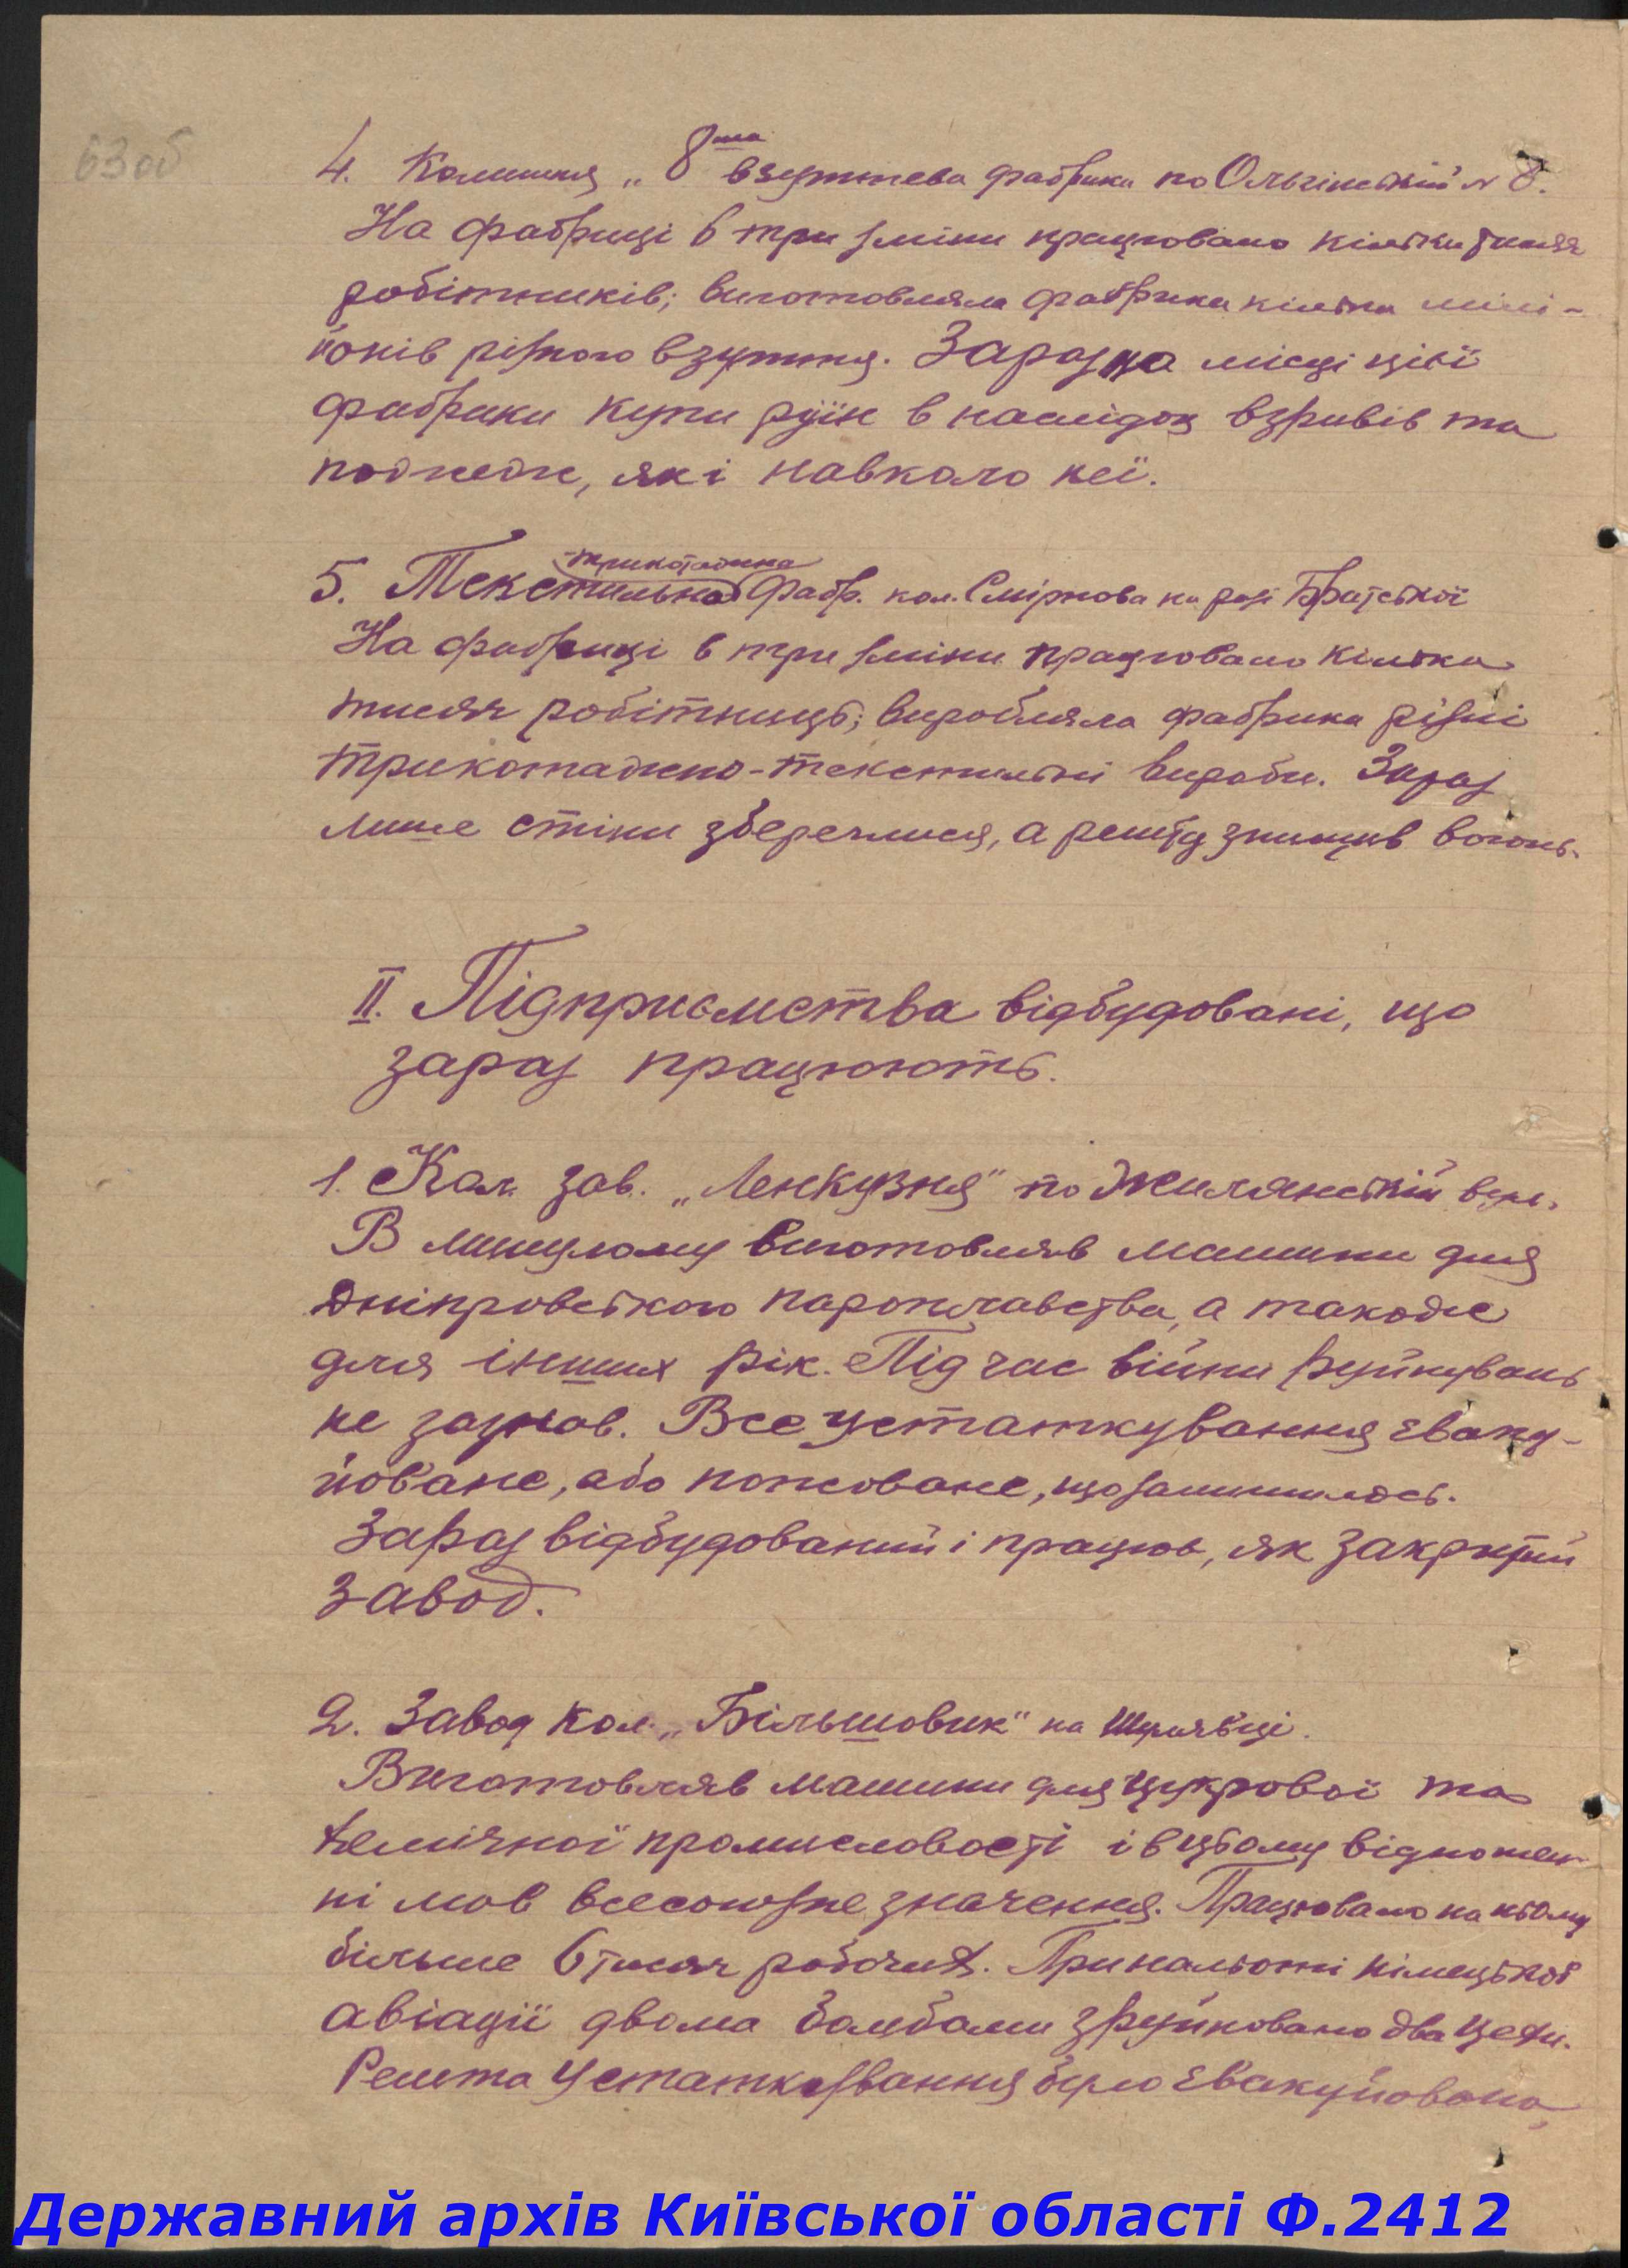 63об
4. Колишня „8ма взуттєва фабрика по Ольгінській № 8.
На фабриці в три зміни працювало кілька тисяч
робітників; виготовляла фабрика кілька мілі-
йонів різного взуття. Зараз на місці цієї
фабрики купи руїн в наслідок взривів та
пожеж, як і навколо неї.
5. Текстильно-трикотажна фабр. кол. Смірнова на розі Братської
На фабриці в три зміни працювало кілька
тисяч робітниць; виробляла фабрика різні
трикотажно-текстильні вироби. Зараз
лише стіни збереглися, а решту знищив вогонь.
II. Підприємства відбудовані, що
зараз працюють.
1. Кол. зав. „Ленкузня" по Жилянській вул.
В минулому виготовляв машини для
Дніпровського пароплавства, а також
для інших рік. Під час війни руйнувань
не зазнав. Все устаткування еваку-
йоване, або попсоване, що залишилось.
Зараз відбудований і працює, як закритий
завод.
2. Завод кол. „Більшовик" на Шулявці.
Виготовляв машини для цукрової та
хемічної промисловості і в цьому відношен-
ні мав всесоюзне значення. Працювало на ньому
більше 6 тисяч робочих. При нальоті німецької
авіації двома бомбами зруйновано два цехи.
Решта устаткування було евакуйовано,
Державний архів Київської області Ф.2412